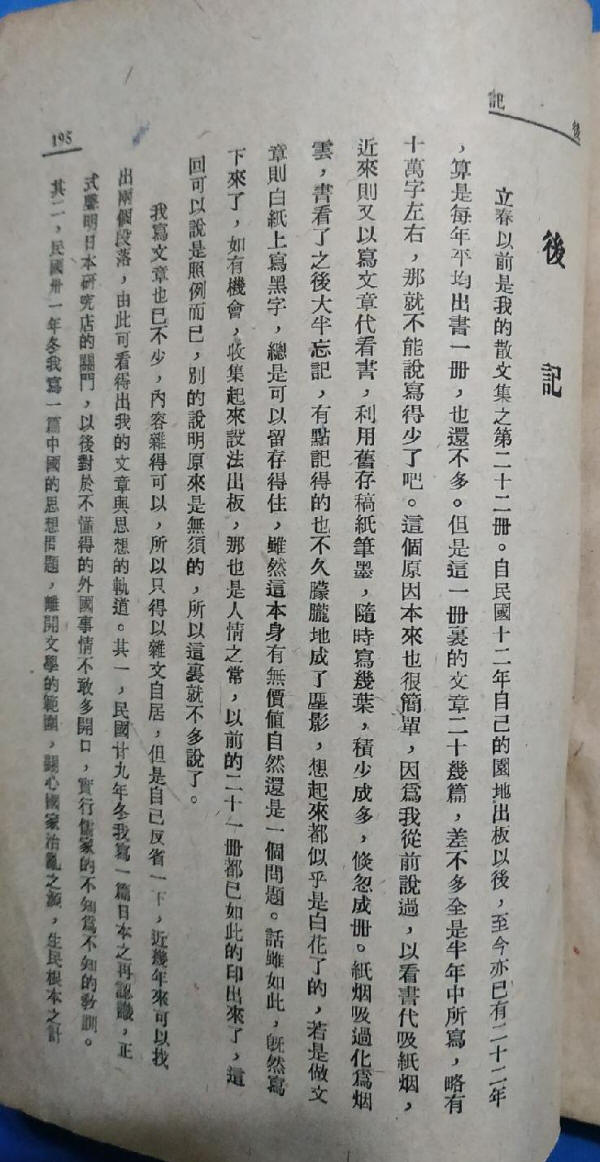 後記
後記
立春以前是我的散文集之第二十二冊。自民國十二年自己的園地出板以後，至今亦已有二十二年
，算是每年平均出書一冊，也還不多。但是這一冊裏的文章二十幾篇，差不多全是半年中所寫，略有
十萬字左右，那就不能說寫得少了吧。這個原因本來也很簡單，因爲我從前說過，以看書代吸紙烟，
近來則又以寫文章代看書，利用舊存稿紙筆墨，隨時寫幾葉，積少成多，倏忽成冊。紙烟吸過化爲烟
雲，書看了之後大半忘記，有點記得的也不久朦朧地成了塵影，想起來都似乎是白花了的，若是做文
章則白紙上寫黑字，總是可以留存得住，雖然這本身有無價值自然還是一個問題。話雖如此，旣然寫
下來了，如有機會，收集起來設法出板，那也是人情之常，以前的二十一冊都已如此的印出來了，這
回可以說是照例而已，別的說明原來是無須的，所以這裏就不多說了。
我寫文章也已不少，內容雜得可以，所以只得以雜文自居，但是自己反省一下，近幾年來可以找
出兩個段落，由此可看得出我的文章與思想的軌道。其一，民國廿九年冬我寫一篇日本之再認識，正
式聲明日本研究店的關門，以後對於不懂得的外國事情不敢多開口，實行儒家的不知爲不知的敎訓。
其二，民國卅一年冬我寫一篇中國的思想問題，離開文學的範圍，關心國家治亂之源，生民根本之計
195